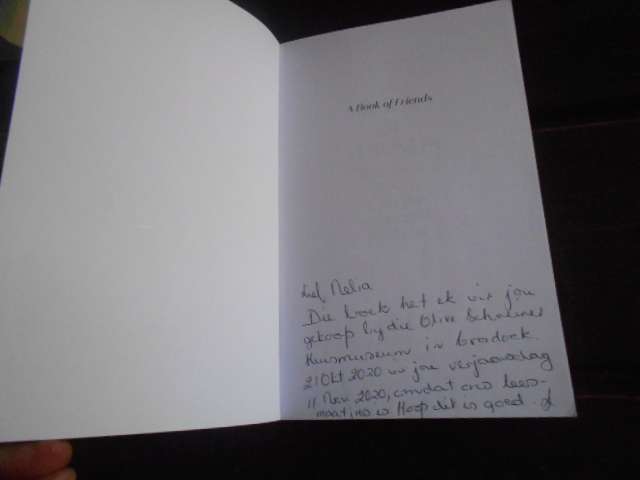 A Book of Friends
Lief Nelia
Die boek het ek vir jou
gekoop by die Olive Schreiner
Huismuseum in Cradock.
21 Okt 2020 vir jou verjaarsdag
11 Nov 2020, omdat ons lees-
maats is Hoop dit is goed.